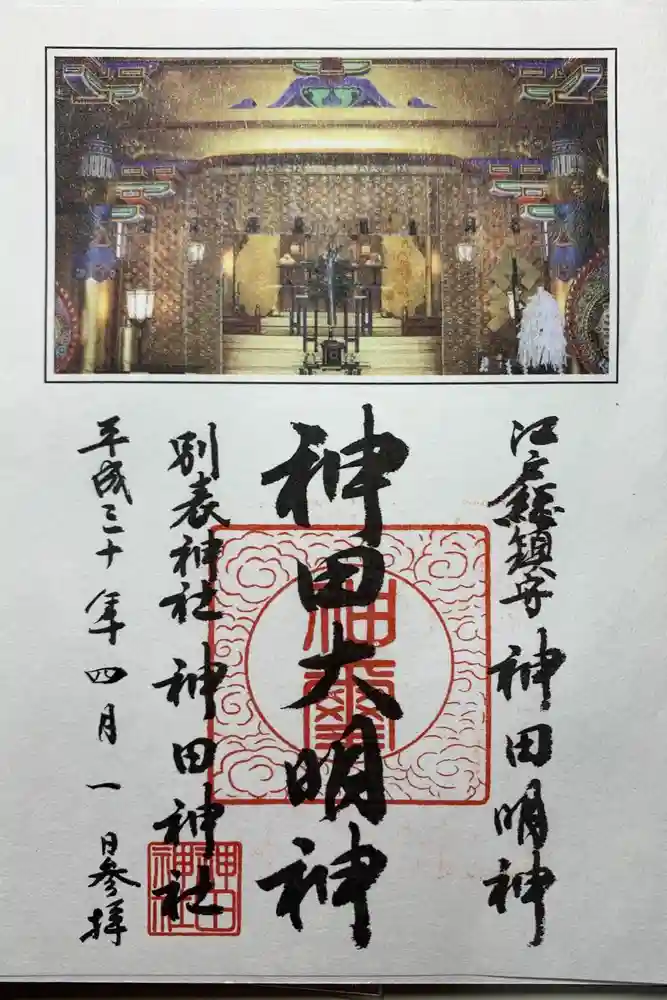 江戸総鎮守 神田明神
神田大明神
別表神社 神田神社
平成三十年四月一日参拝
神田神社